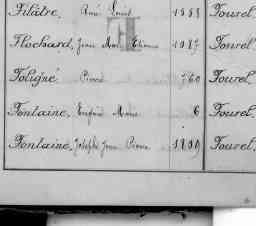 Filâtre, René Louis 1888 Tourel.
Flochard, Jean Marie Etienne 1087 Tourel.
Foligné Pierre 760 Tourel.
Fontaine, Marie 6 Tourel.
Fontaine, Joseph Jean Pierre 1899 Tourel.